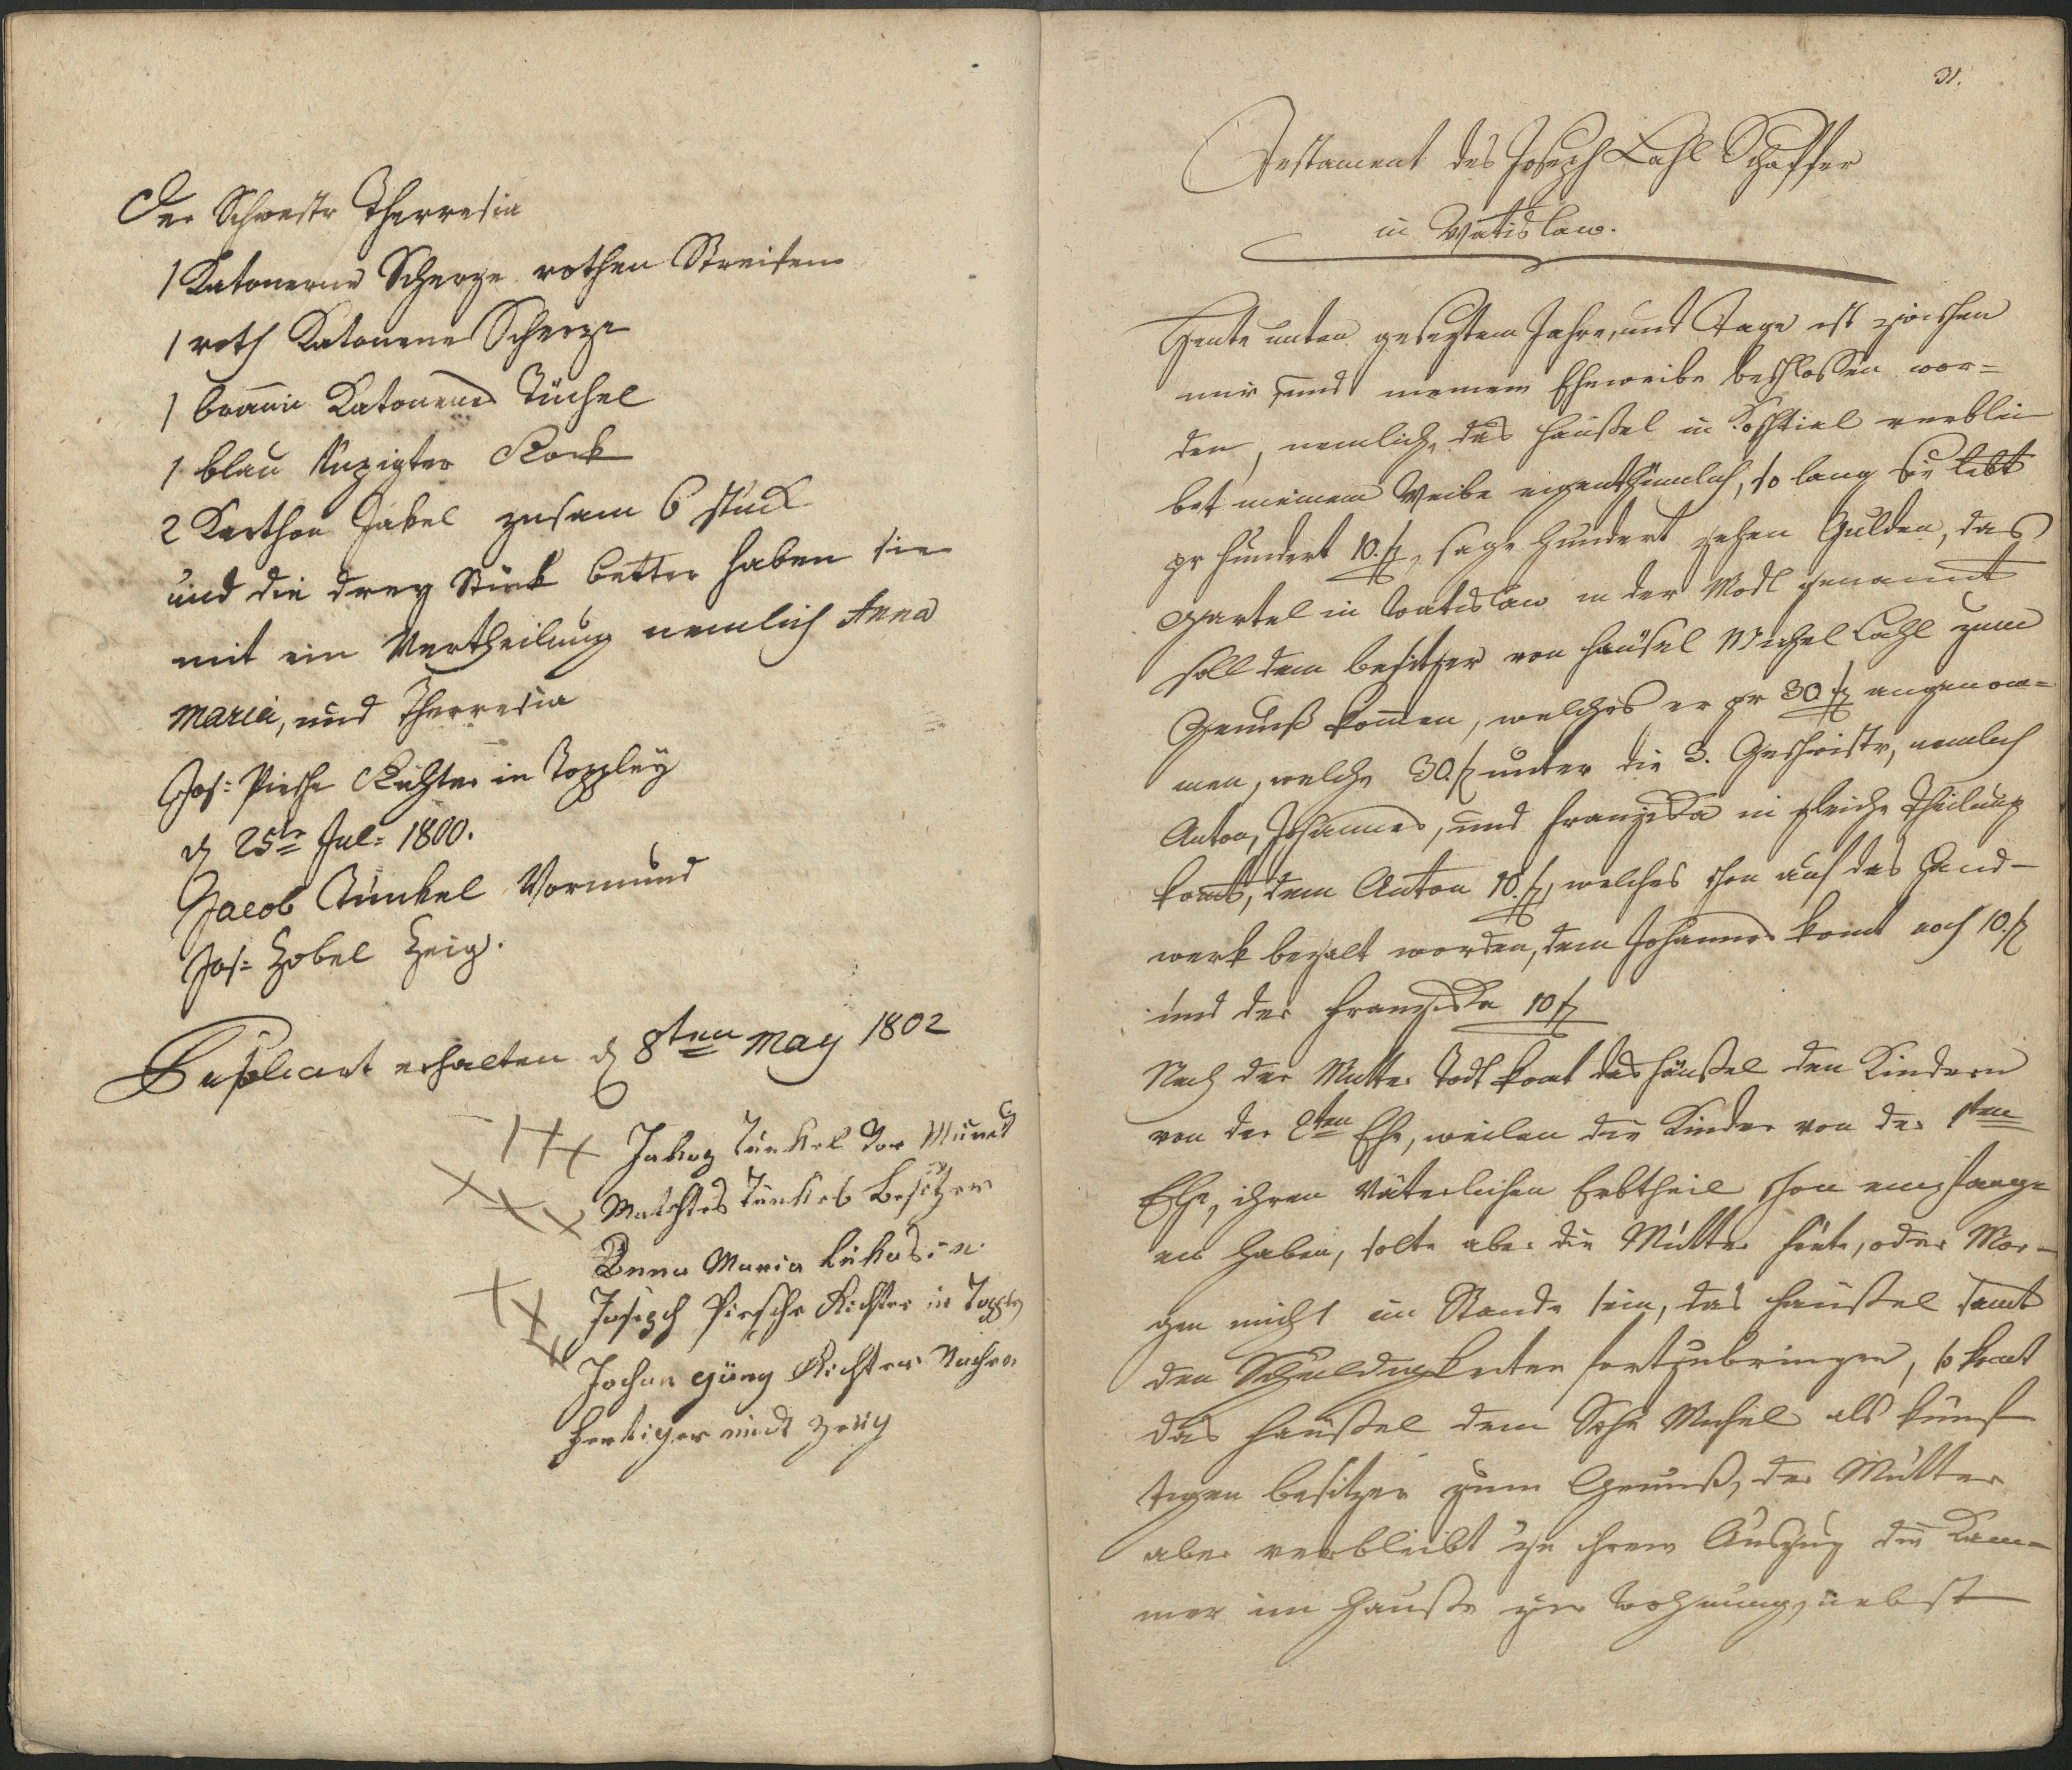 Der Schwestr Therresia
1 Katonerne Scherze rothen Streifen
1 roth Katonene Scherze
1 braun Katonene Tüchel
1 blau Rock
2 Karthon Jakel zusam 6 stück
und die drey Stück better haben sie
mit ein Vertheilung nemlich Anna
Maria, und Therresia
Jos: Piesche Richter in Toppley
d 25te Jul: 1800.
Jacob Tunkel Vormund
Jos: Zobel Zeig.
Duplicat erhalten d 8ten May 1802
+++ Jakog Tunkel Vor Mund
+++ Mathes Tunkel besitzer
Anna Maria Lukasin
+++ Joseph Piesche Richter in Topply
Johan Richter
und Zeüg
31.
Testament des Joseph Lahl Schaffer
in Watislaw.
Heute unten gesezten Jahre, und Tage ist zwischen
mir, und meinem Eheweibe beschlossen wor=
den, nemlich, das Häußel in Koschtial verblei
bet meinem Weibe eigenthümlich, so lang sie lebt
pr Hundert 10. f, sage Hundert zehen Gulden, das
Gartel in Watislaw in der Modl genannt
soll dem besitzer von Häusel Michel Lahl zum
Genuß kommen, welches er pr 30 f angenom=
men, welche 30. f unter die 3. Geschwistr, nemlich
Anton, Johannes, und Franziska in gleiche Theilung
komt, dem Anton 10. f, welches schon auf das Hand-
werk bezalt worden, dem Johannes komt noch 10. f
und der Franziska 10 f
Nach der Mutter Todt komt das Häußel den Kindern
von der 2ten Ehe, weilen die Kinder von der 1ten
Ehe, ihren Väterlichen Erbtheil schon empfange
en haben, solte aber die Mutter heüte, oder Mor-
gen nicht im Stande sein, das Häußel samt
den Schuldigkeiten fortzubringen, so komt
das Häußel dem Sohn Michel als künf
tigen besitzer zum Genuß, der Mutter
aber verbleibt zu ihrem Auszug die Kam=
mer im Hauße zur Wohnung, nebst